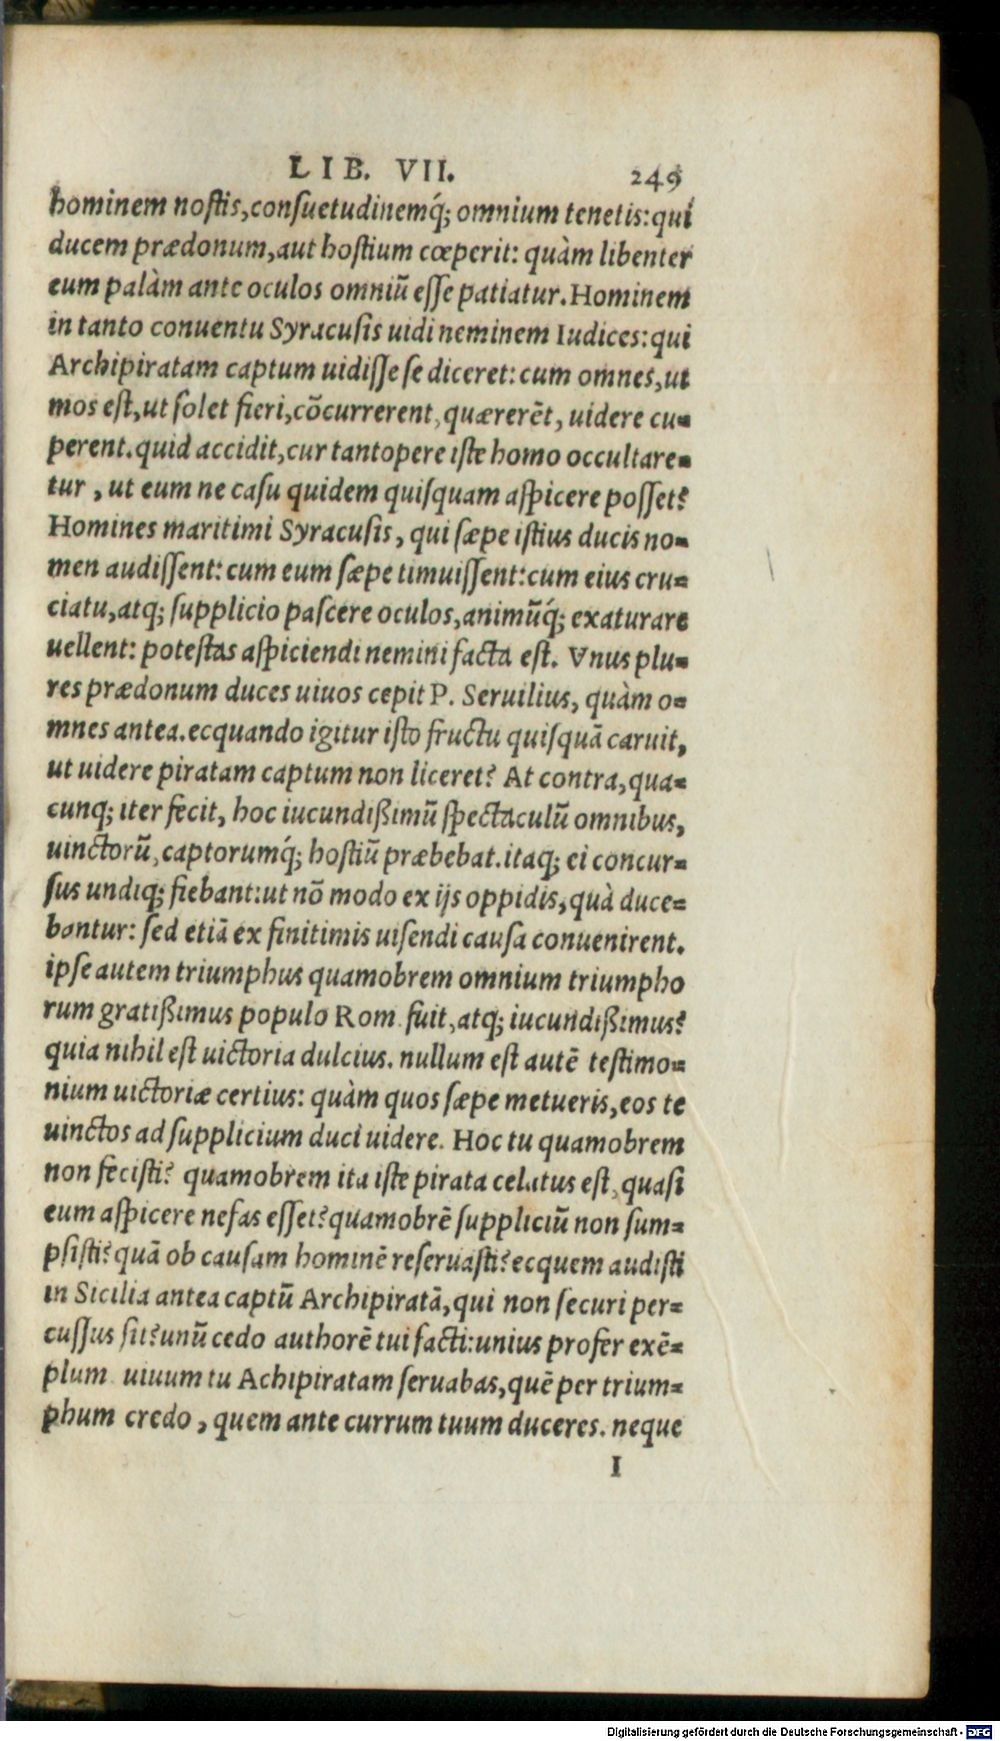 LIB. VII. 249
hominem nostis,consuetudinemq́; omnium tenetis:qui
ducem prædonum,aut hostium cœperit: quàm libenter
eum palàm ante oculos omniũ esse patiatur.Hominem
in tanto conuentu Syracusis uidi neminem Iudices:qui
Archipiratam captum uidisse se diceret: cum omnes,ut
mos est,ut solet fieri,cõcurrerent,quærerẽt, uidere cu-
perent.quid accidit,cur tantopere iste homo occultare-
tur , ut eum ne casu quidem quisquam aspicere posset?
Homines maritimi Syracusis, qui sæpe istius ducis no-
men audissent: cum eum sæpe timuissent:cum eius cru-
ciatu,atq; supplicio pascere oculos,animũq́; exaturare
uellent: potestas aspiciendi nemini facta est. Vnus plu-
res prædonum duces uiuos cepit P. Seruilius, quàm o-
mnes antea.ecquando igitur isto fructu quisquã caruit,
ut uidere piratam captum non liceret? At contra,qua-
cunq; iter fecit, hoc iucundißimũ spectaculũ omnibus,
uinctorũ,captorumq́; hostiũ præbebat.itaq; ei concur-
sus undiq; fiebant:ut nõ modo ex ijs oppidis,quà duce-
bantur: sed etiã ex finitimis uisendi causa conuenirent.
ipse autem triumphus quamobrem omnium triumpho
rum gratißimus populo Rom. fuit,atq; iucundißimus?
quia nihil est uictoria dulcius. nullum est autẽ testimo-
nium uictoriæ certius: quàm quos sæpe metueris,eos te
uinctos ad supplicium duci uidere. Hoc tu quamobrem
non fecisti? quamobrem ita iste pirata celatus est,quasi
eum aspicere nefas esset?quamobrẽ suppliciũ non sum-
psisti?quã ob causam hominẽ reseruasti?ecquem audisti
in Sicilia antea captũ Archipiratã,qui non securi per-
cussus sit?unũ cedo authorẽ tui facti:unius profer exẽ-
plum uiuum tu Achipiratam seruabas,quẽ per trium-
phum credo , quem ante currum tuum duceres. neque
I
Digitalisierung gefördert durch die Deutsche Forschungsgemeinschaft - DFG